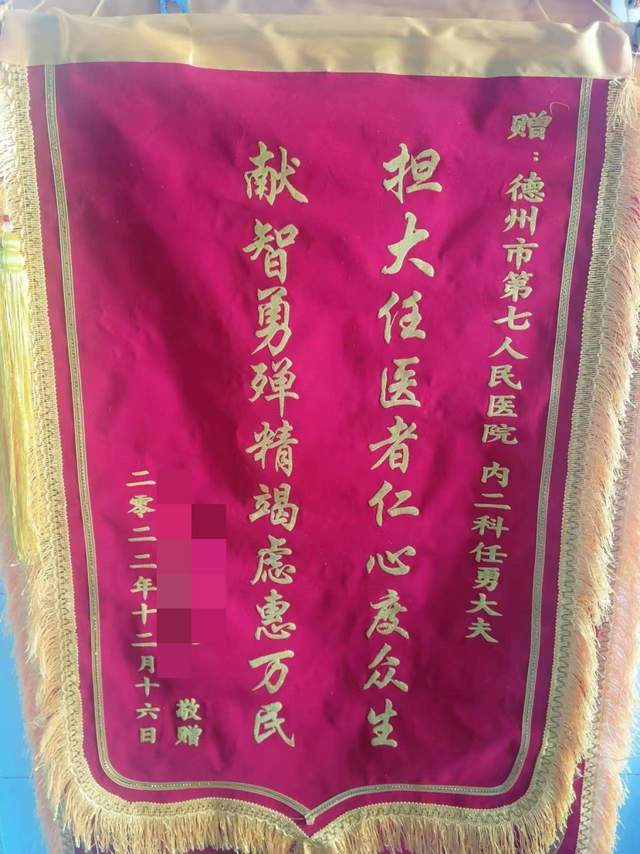 赠：德州市第七人民医院 内二科任勇大夫
担大任医者仁心度众生
献智勇殚精竭虑惠万民
敬赠
二零二二年十二月十六日